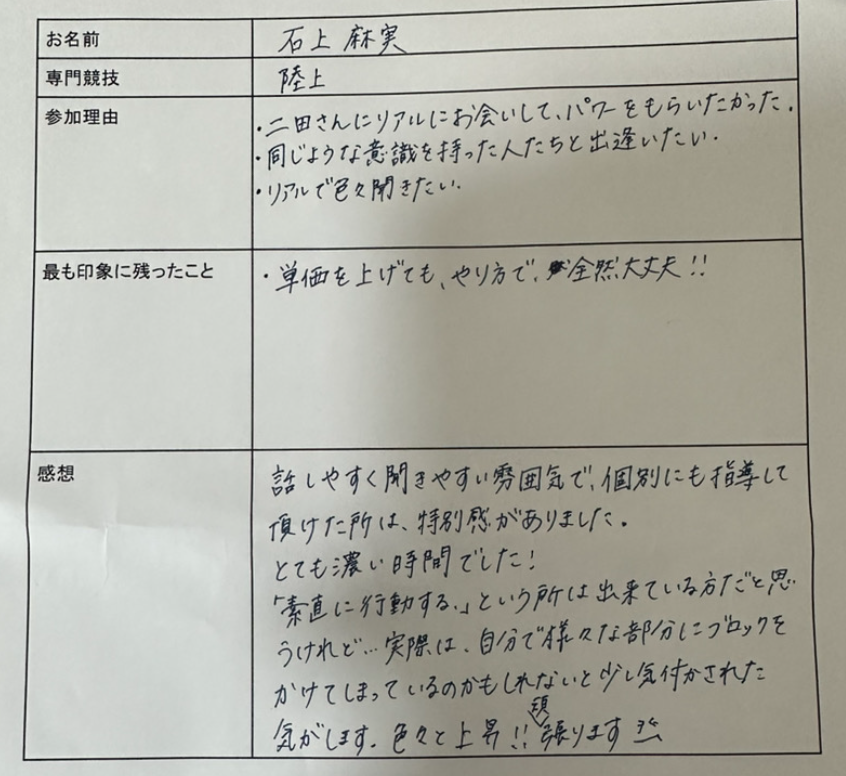 お名前 石上 麻実
専門競技 陸上
参加理由 ・二田さんにリアルにお会いして、パワーをもらいたかった。
・同じような意識を持った人たちと出逢いたい。
・リアルで色々聞きたい。
最も印象に残ったこと ・単価を上げても、やり方で、全然大丈夫!!
感想 話しやすく聞きやすい雰囲気で、個別にも指導して
頂けた所は、特別感がありました。
とても濃い時間でした!
「素直に行動する。」という所は出来ている方だと思
うけれど…実際は、自分で様々な部分にブロックを
かけてしまっているのかもしれないと少し気付かされた
気がします。色々と上昇!!頑張ります